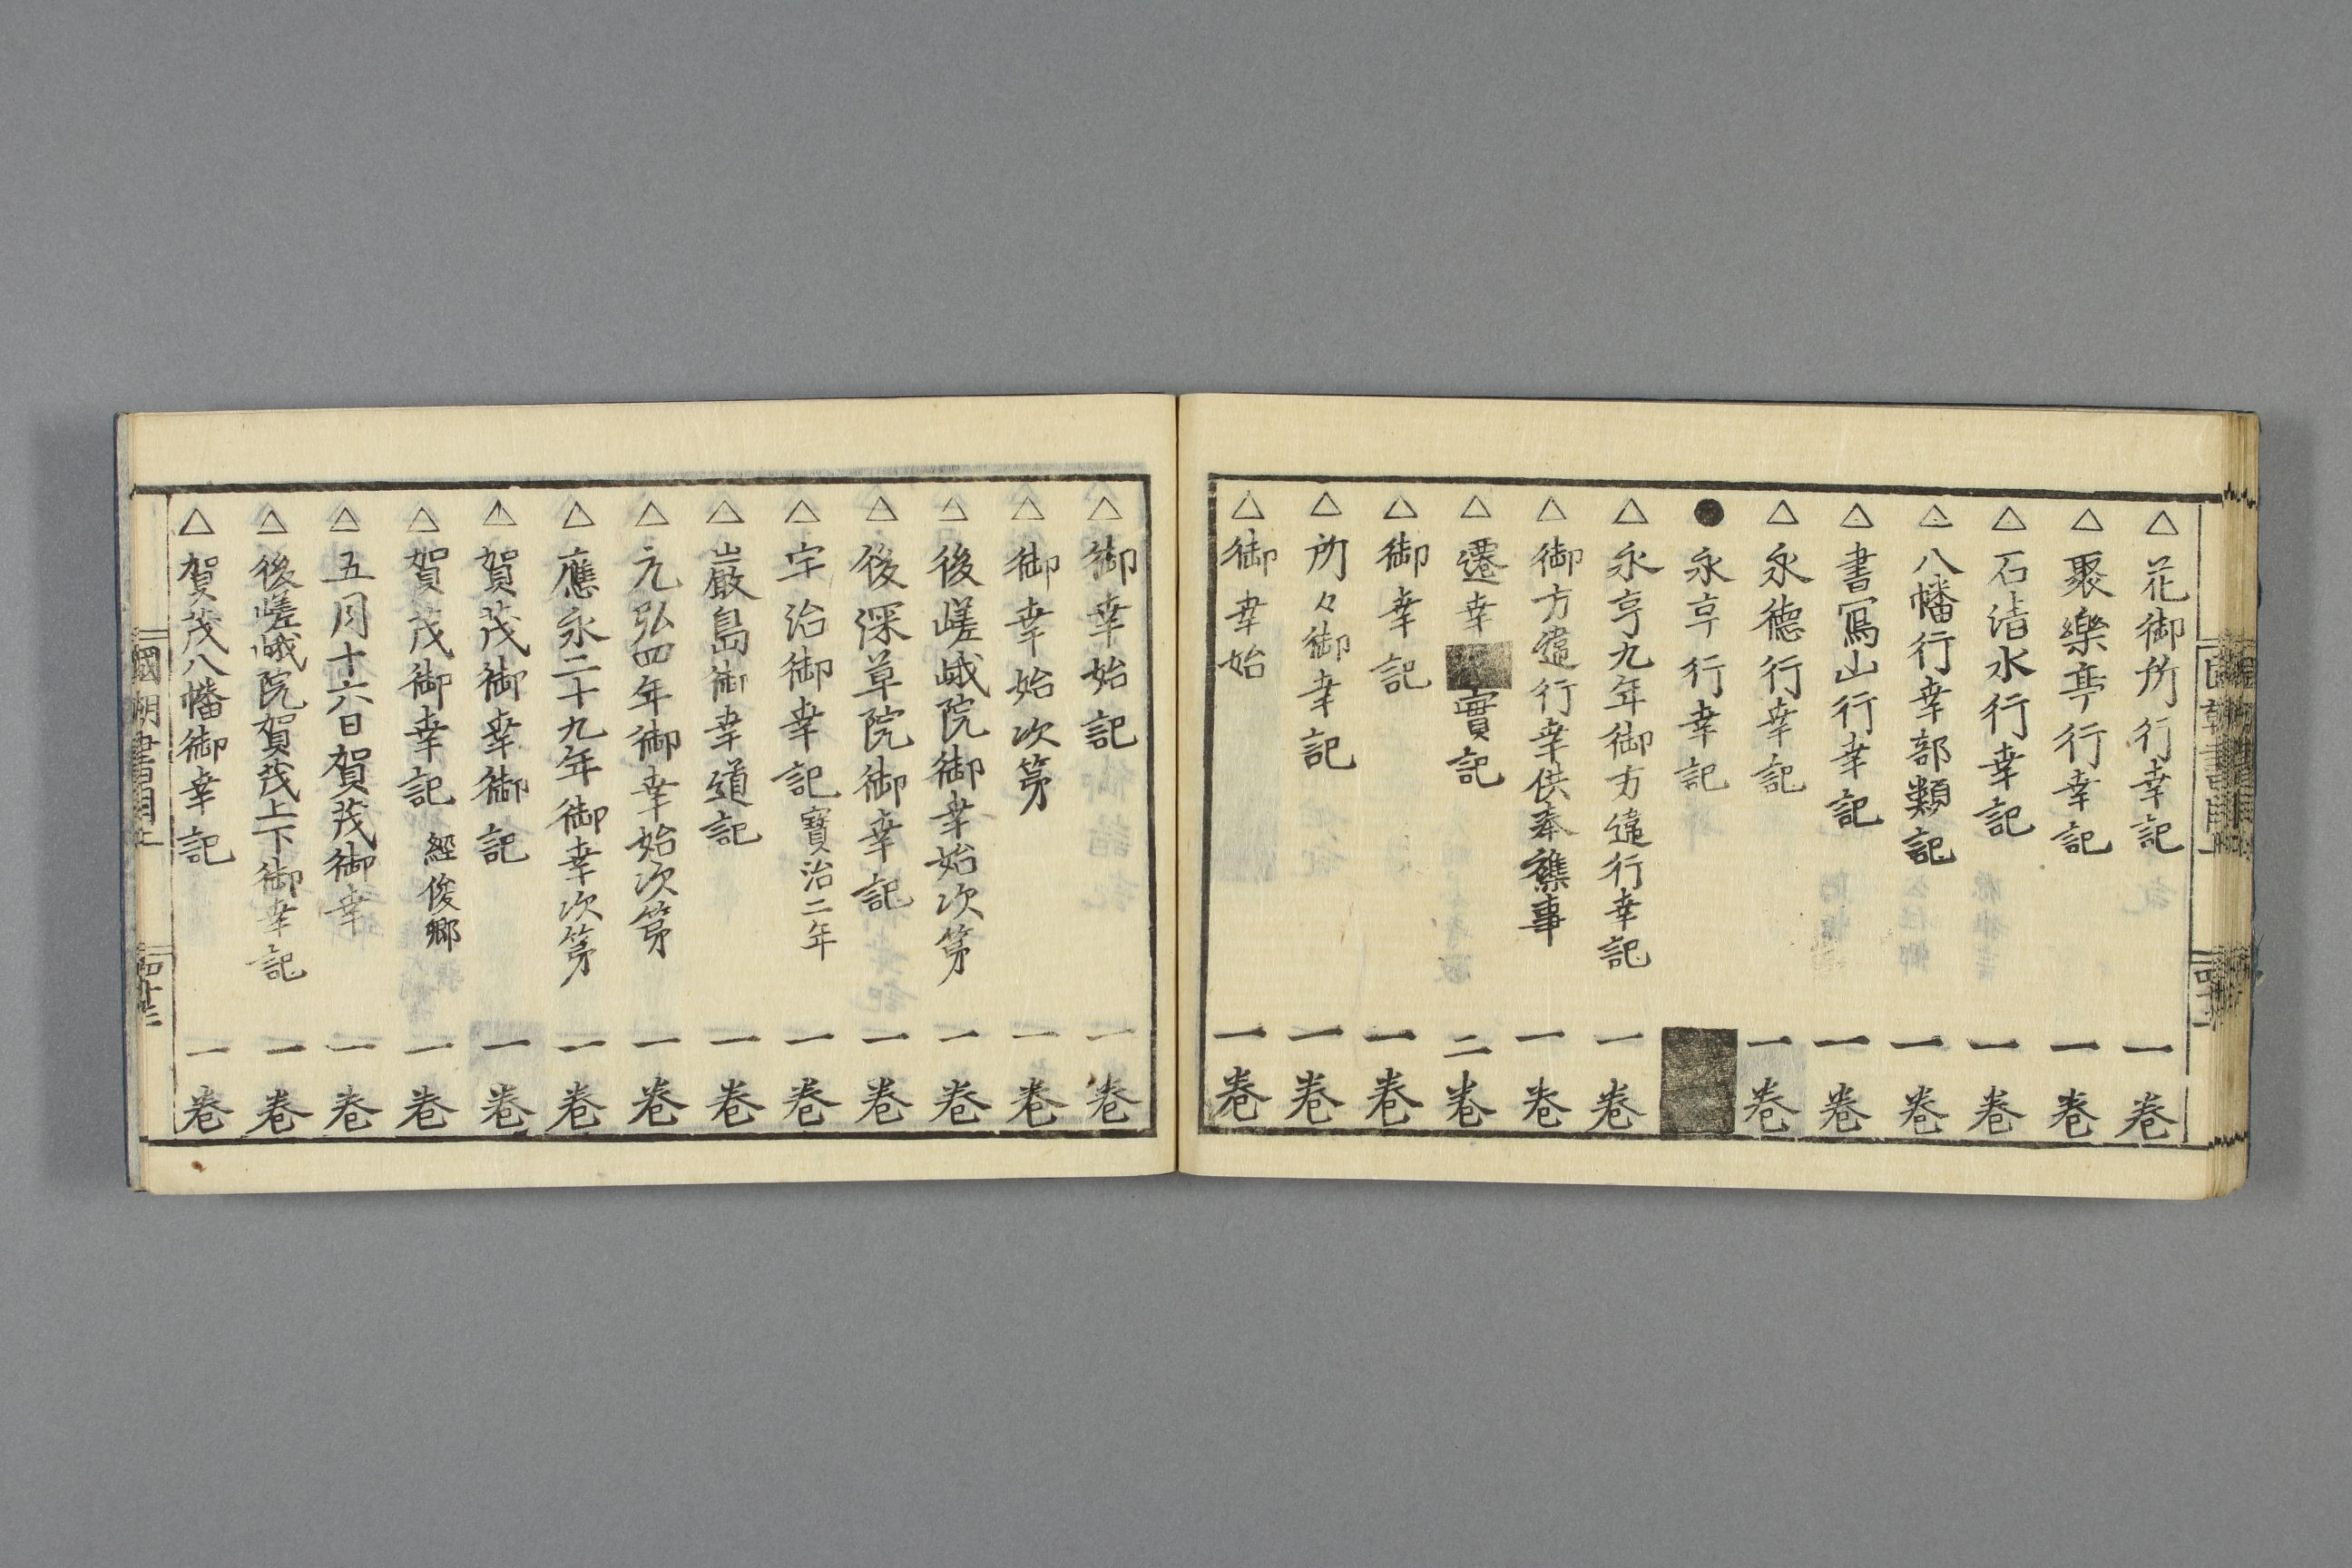 △花御所行幸記 一卷
△聚樂亭行幸記 一卷
△石清水行幸記 一卷
△八幡行幸部類記 一卷
△書寫山行幸記 一卷
△永德行幸記 一卷
●永享行幸記
△永享九年御方違行幸記 一卷
△御方違行幸供奉雜事 一卷
△遷幸 實記 二卷
△御幸記 一卷
△所々御幸記 一卷
△御幸始 一卷
△御幸始記 一卷
△御幸始次第 一卷
△後嵯峨院御幸始次第 一卷
△後深草院御幸記 一卷
△宇治御幸記 寶治二年 一卷
△嚴島御幸道記 一卷
△元弘四年御幸始次第 一卷
△應永二十九年御幸次第 一卷
△賀茂御幸御記 一卷
△賀茂御幸記 經俊卿 一卷
△五月十六日賀茂御幸 一卷
△後嵯峨院賀茂上下御幸記 一卷
△賀茂八幡御幸記 一卷
國朝書目上